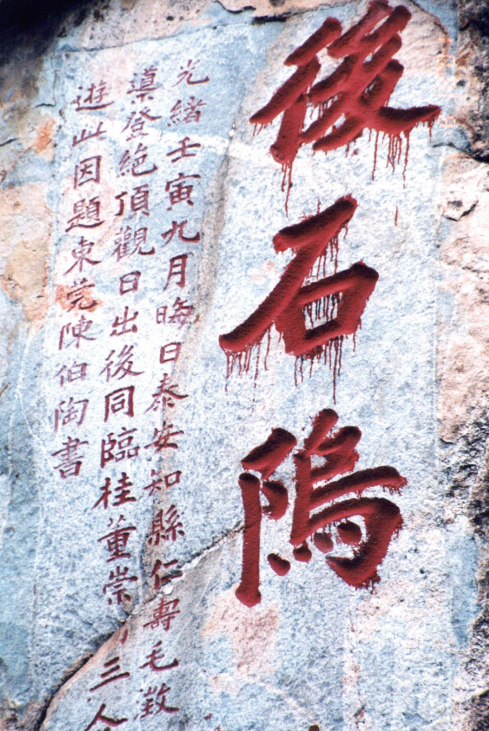 後石隖
光緒壬寅九月晦日泰安知縣仁壽毛澂
導登絶頂觀日出後同臨桂董崇三人
遊此因題東莞陳伯陶書